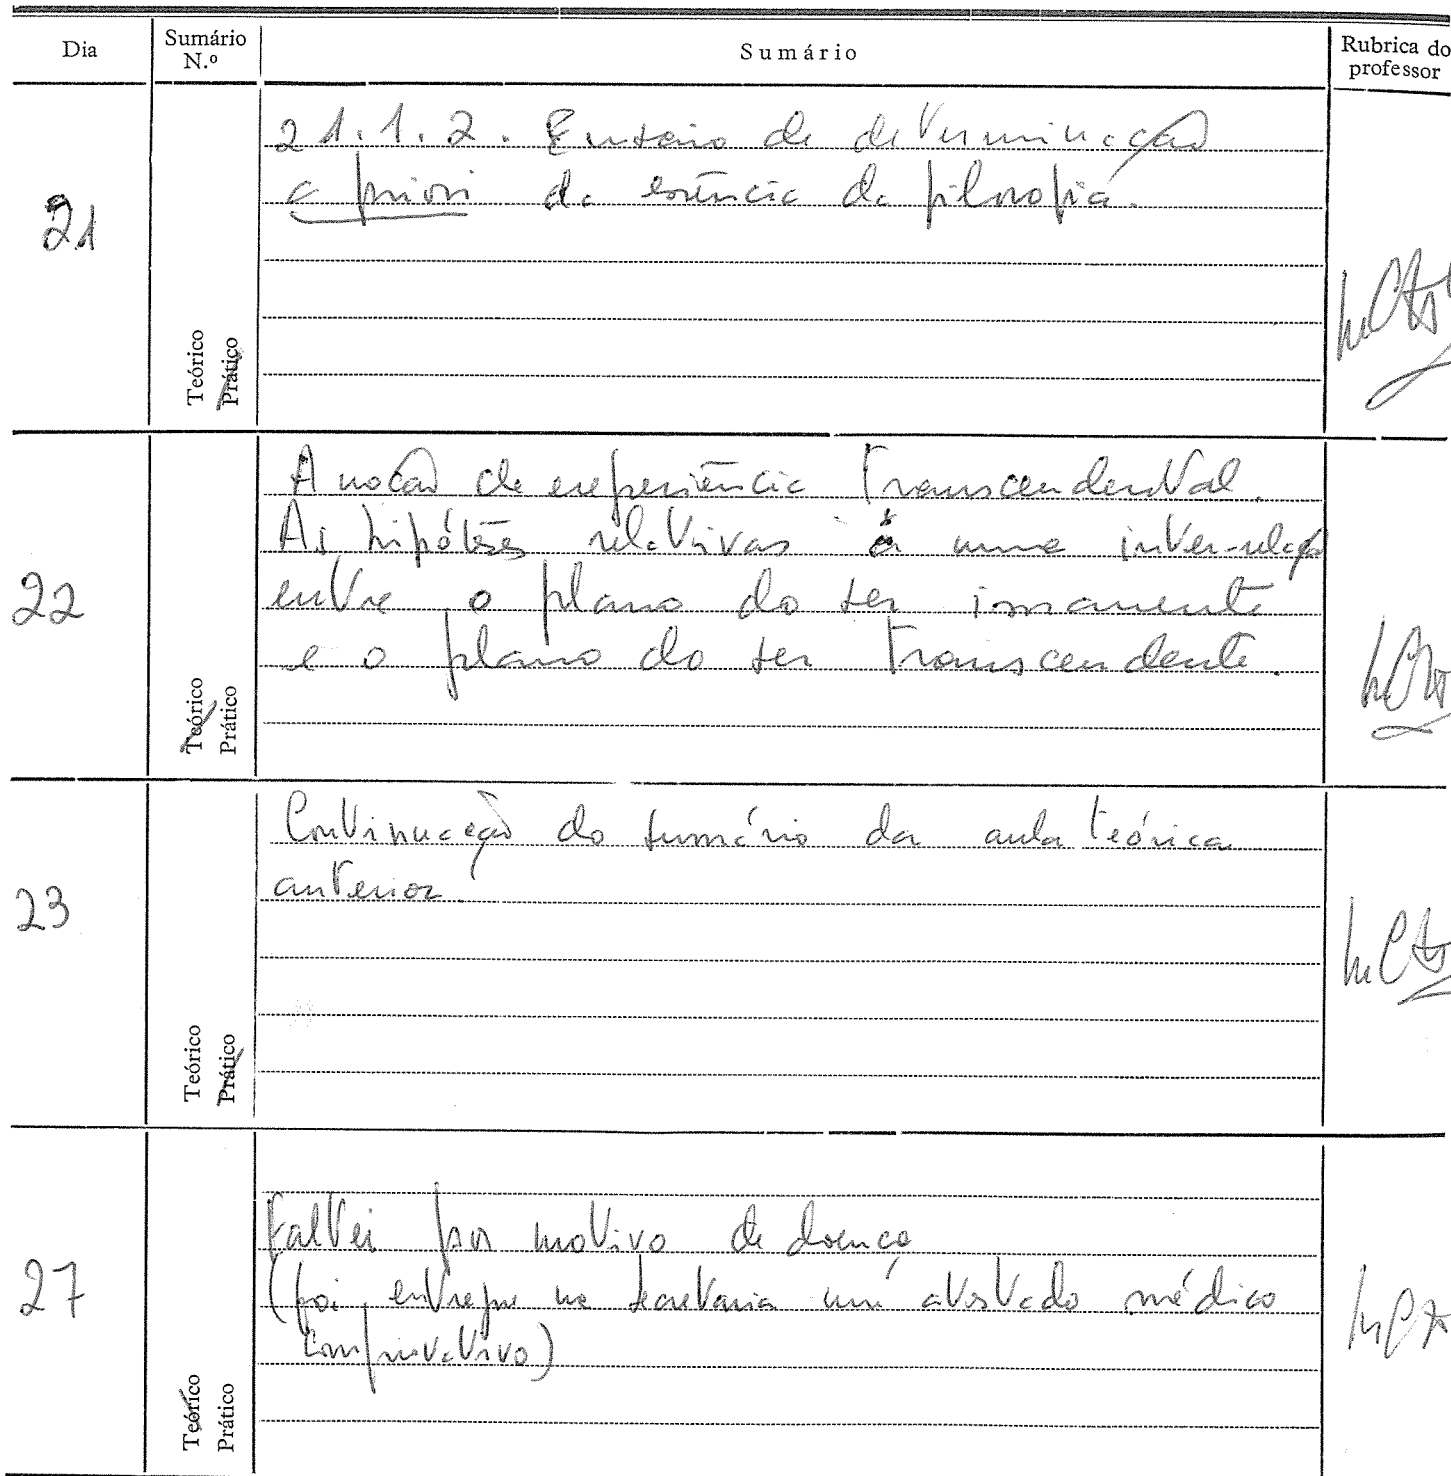 Dia
Sumário N.º
Sumário
Rubrica do professor
21
21.1.2. Ensaio de determinação
a priori da essência da filosofia.
Teórico
Prático
22
A noção de experiência transcendental.
As hipóteses relativas a uma inter-relação
entre o plano do ser imanente
e o plano do ser transcendente.
Teórico
Prático
23
Continuação do sumário da aula teórica
anterior.
Teórico
Prático
27
Faltei por motivo de doença
(foi entregue na secretaria um atestado médico
comprovativo)
Teórico
Prático